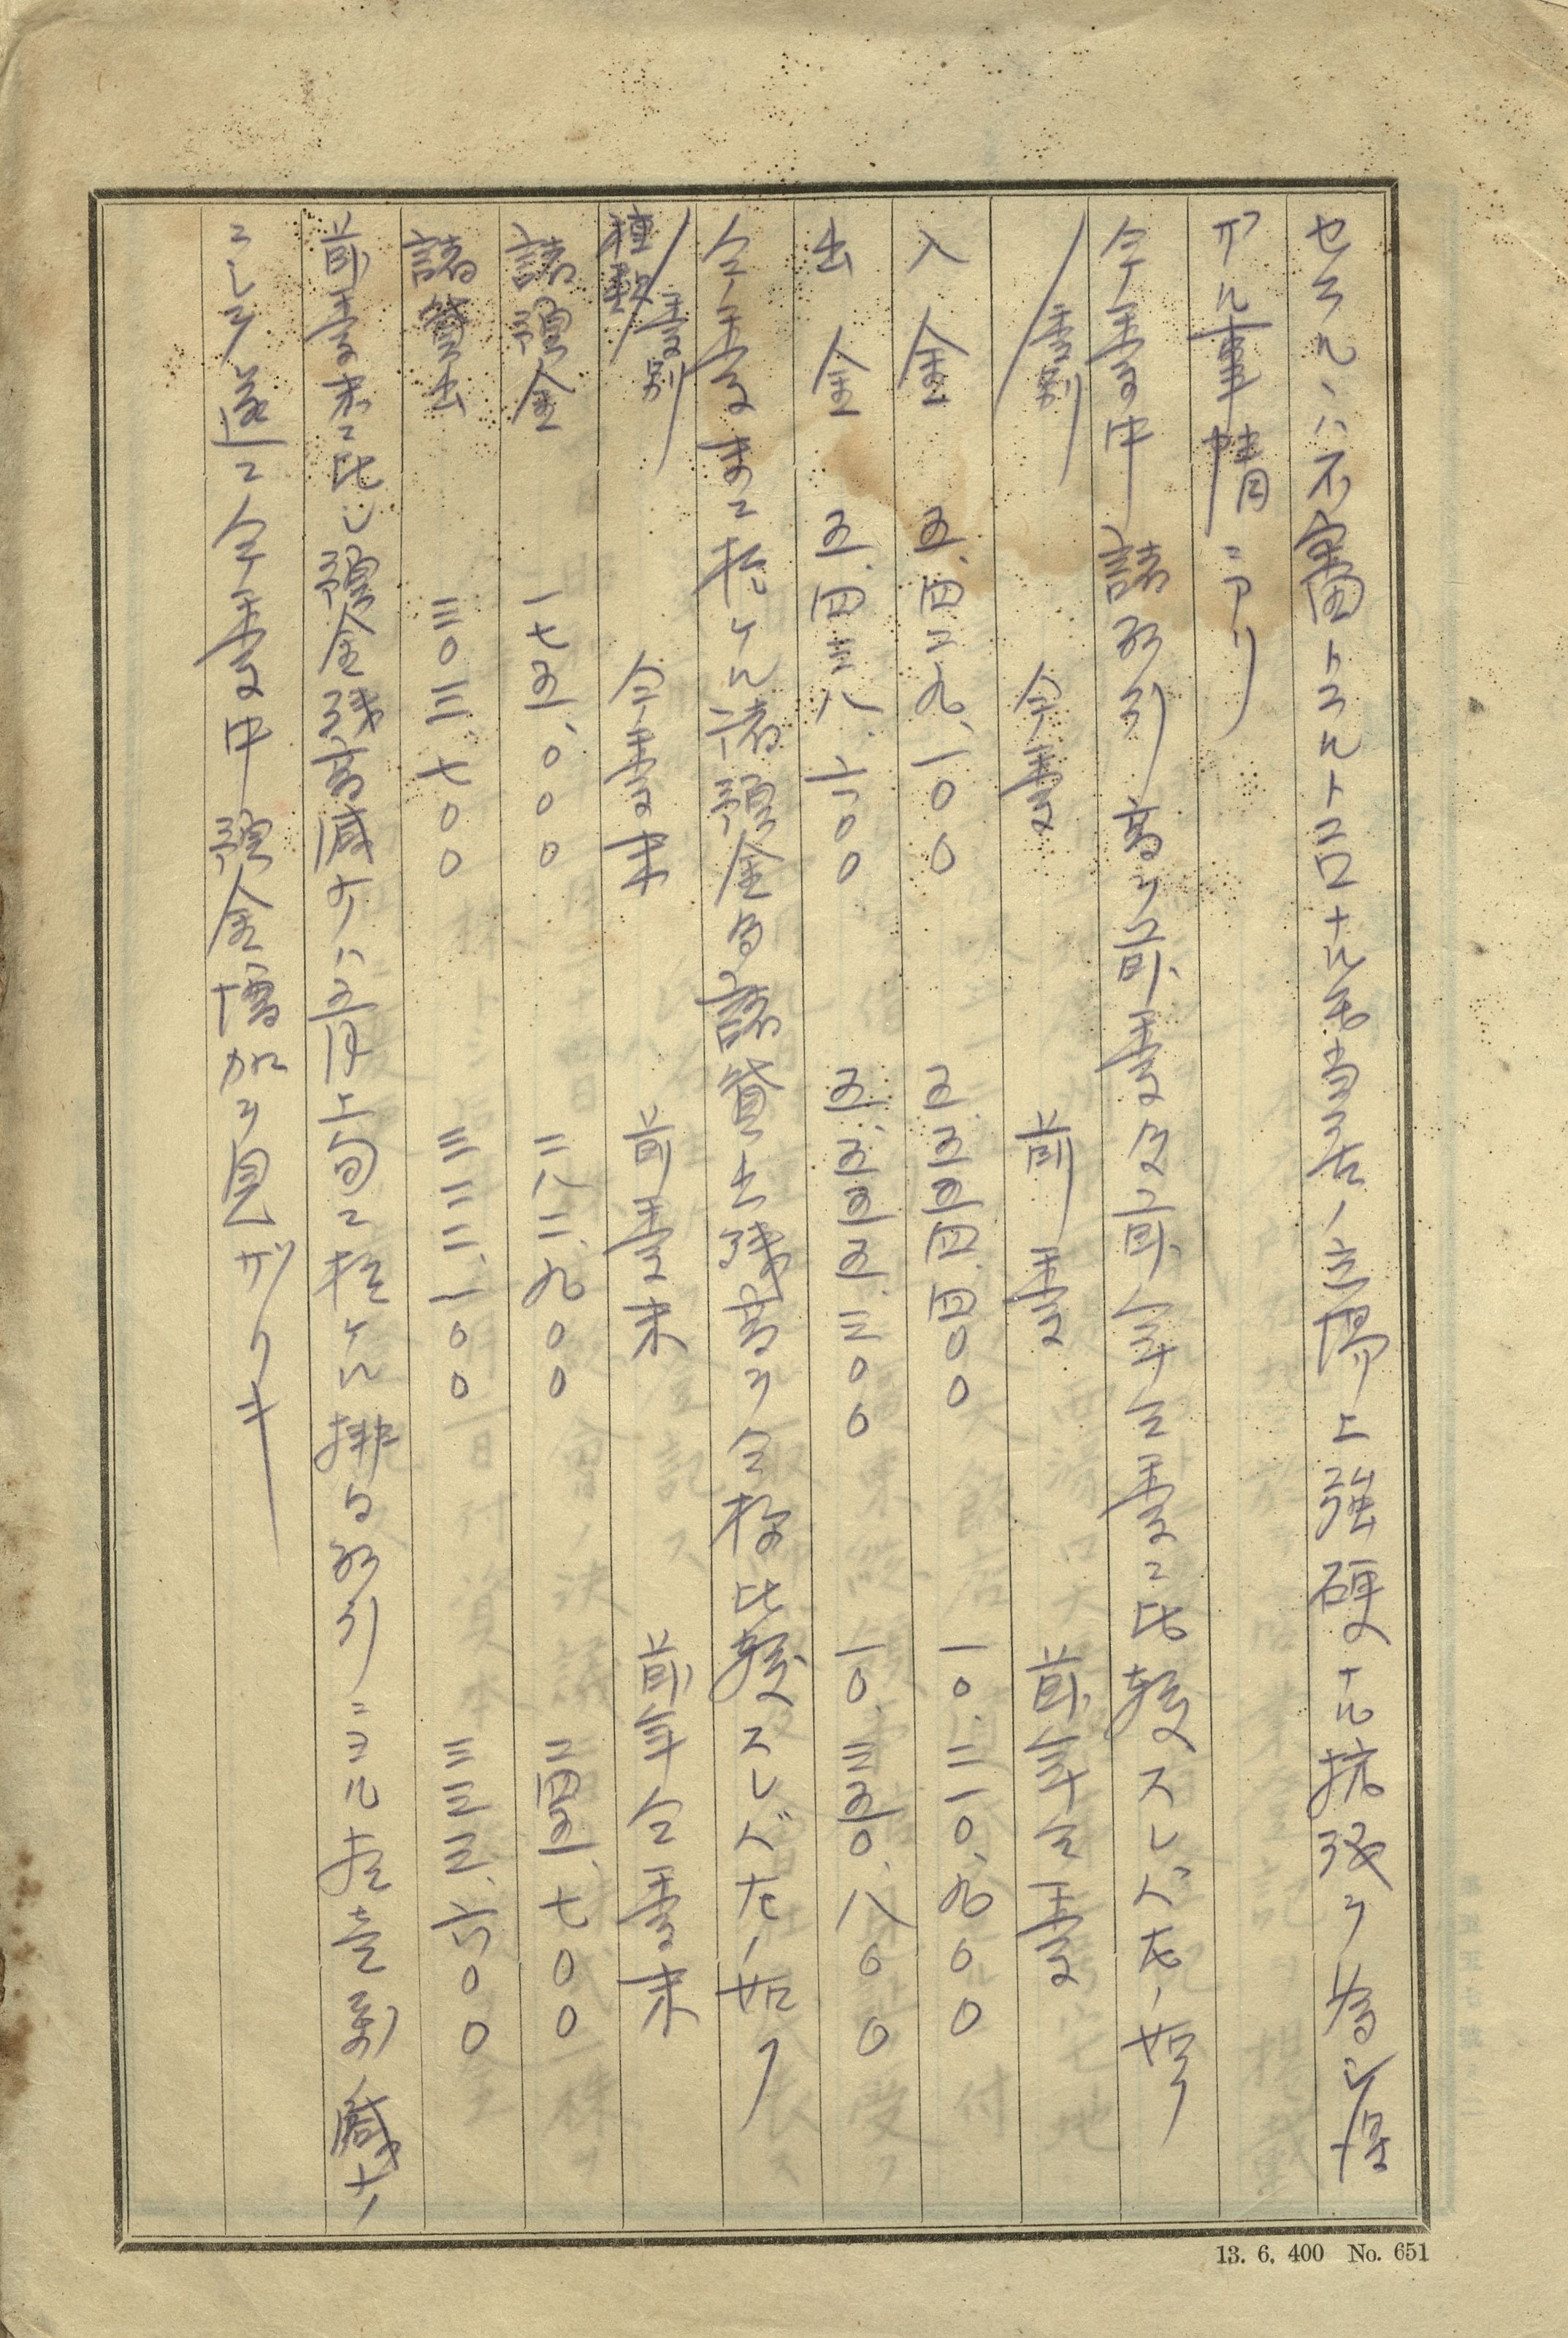 セラルヽハ不審トスルトコロナルモ当店ノ立場上強硬ナル抗議ヲ為シ得
ザル事情ニアリ
今季中諸取引高ヲ前季及前年仝季ニ比較スレバ左ノ如ク
季別 今季 前季 前年仝季
入金 五、四二九、一〇〇 五、五五四、四〇〇 一〇、二一〇、九〇〇
出金 五、四三八、六〇〇 五、五五五、三〇〇 一〇、三五〇、八〇〇
今季末ニ於ケル諸預金及諸貸出残高ヲ仝様比較スレバ左ノ如ク
種類 季別 今季末 前季末 前年仝季末
諸預金 一七五、〇〇〇 二八二、九〇〇 二四五、七〇〇
諸貸出 三〇三、七〇〇 三二二、一〇〇 三三三、六〇〇
前季末ニ比シ預金残高減少ハ五月上旬ニ於ケル排日取引ニヨル激減ナ
ニシテ遂ニ今季中預金増加ヲ見ザリキ
13. 6. 400 No. 651